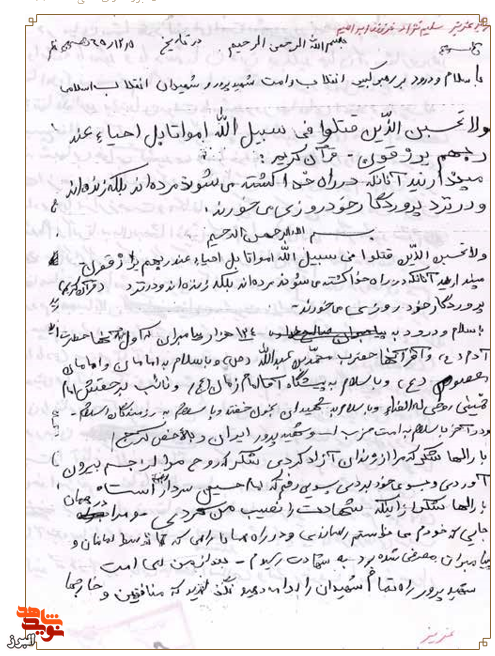 بسم الله الرحمن الرحیم در تاریخ
با سلام و درود بر رهبر کبیر انقلاب و امت شهید پرور و شهیدان انقلاب اسلامی
ولا تحسبن الذین قتلوا فی سبیل الله امواتا بل احیاء عند
ربهم یرزقون قرآن کریم :
مپندارید آنانکه در راه خدا کشته می شوند مرده اند بلکه زنده اند
و در نزد پروردگار خود روزی می خورند .
بسم الله الرحمن الرحیم
ولا تحسبن الذین قتلوا فی سبیل الله امواتا بل احیاء عند ربهم یرزقون
مپندارید آنانکه در راه خدا کشته می شوند مرده اند بلکه زنده اند و در نزد (قرآن کریم)
پروردگار خود روزی می خورند
با سلام و درود به ۱۲۴ هزار پیامبران که اول آنها حضرت
آدم (ع) و آخر آنها حضرت محمد بن عبدالله (ص) و با سلام به امامان و امامان
معصوم (ع) و با سلام به پیشگاه آقا امام زمان (عج) و نائب بر حقش امام
خمینی روحی له الفداء و با سلام به شهیدان بخون خفته و با سلام به رزمندگان اسلام
و در آخر با سلام به امت حزب الله و شهید پرور ایران و بالاخص کرج
بارالها شکر که مرا از زندان آزاد کردی شکر که روح مرا از جسم بیرون
آوردی و بسوی خود بردی بسویی رفتم که امام حسین سردار آن است
بارالها شکر از اینکه شهادت را نصیب من کردی و مرا در همان
جایی که خودم می خواستم رساندی و در راه همان راهی که توسط امامان و
پیامبران معرفی شده بود به شهادت رسیدم - بعد از من ای امت
شهید پرور راه تمام شهیدان را ادامه دهید نگذارید که منافقین و خارجیها
عزیز
شاهد
نوید
البرز